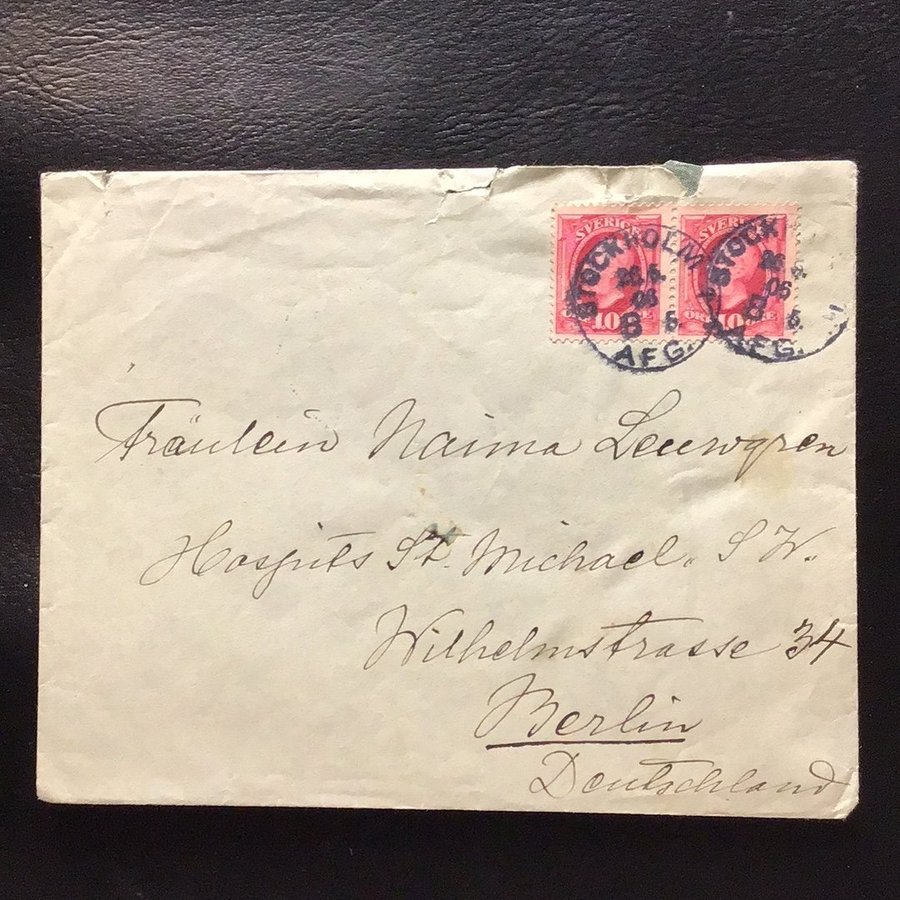 SVERIGE SVERIGE
10 ÖRE 10 ÖRE
STOCKHOLM
26.4.
06
8 6.
AFG.
STOCK
26 4.
06
8 6.
AFG.
Fräulein Naima Leuwgren
Hospits St. Michael. S W.
Wilhelmstrasse 34
Berlin
Deutschland